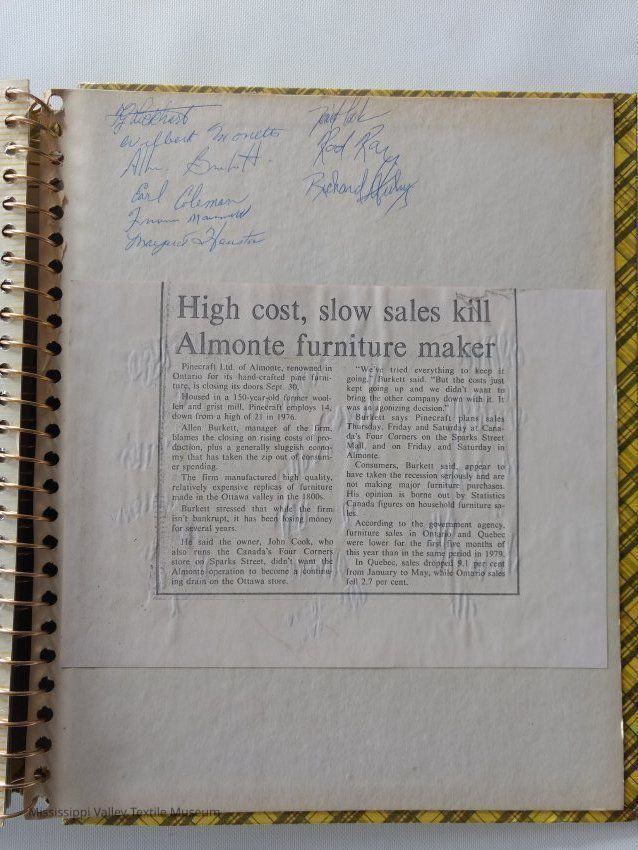 Wilbert Monette
Allen Burkett
Earl Coleman
Margaret Houston
Rod Ray
Richard
High cost, slow sales kill
Almonte furniture maker
Pinecraft Ltd. of Almonte, renowned in
Ontario for its hand-crafted pine furni-
ture, is closing its doors Sept. 30.
Housed in a 150-year-old former wool-
len and grist mill, Pinecraft employs 14,
down from a high of 21 in 1976.
Allen Burkett, manager of the firm,
blames the closing on rising costs of pro-
duction, plus a generally sluggish econo-
my that has taken the zip out of consum-
er spending.
The firm manufactured high quality,
relatively expensive replicas of furniture
made in the Ottawa valley in the 1800s.
Burkett stressed that while the firm
isn't bankrupt, it has been losing money
for several years.
He said the owner, John Cook, who
also runs the Canada's Four Corners
store on Sparks Street, didn't want the
Almonte operation to become a continu-
ing drain on the Ottawa store.
"We've tried everything to keep it
going," Burkett said. "But the costs just
kept going up and we didn't want to
bring the other company down with it. It
was an agonizing decision."
Burkett says Pinecraft plans sales
Thursday, Friday and Saturday at Cana-
da's Four Corners on the Sparks Street
Mall, and on Friday and Saturday in
Almonte.
Consumers, Burkett said, appear to
have taken the recession seriously and are
not making major furniture purchases.
His opinion is borne out by Statistics
Canada figures on household furniture sa-
les.
According to the government agency,
furniture sales in Ontario and Quebec
were lower for the first five months of
this year than in the same period in 1979.
In Quebec, sales dropped 9.1 per cent
from January to May, while Ontario sales
fell 2.7 per cent.
Mississippi Valley Textile Museum